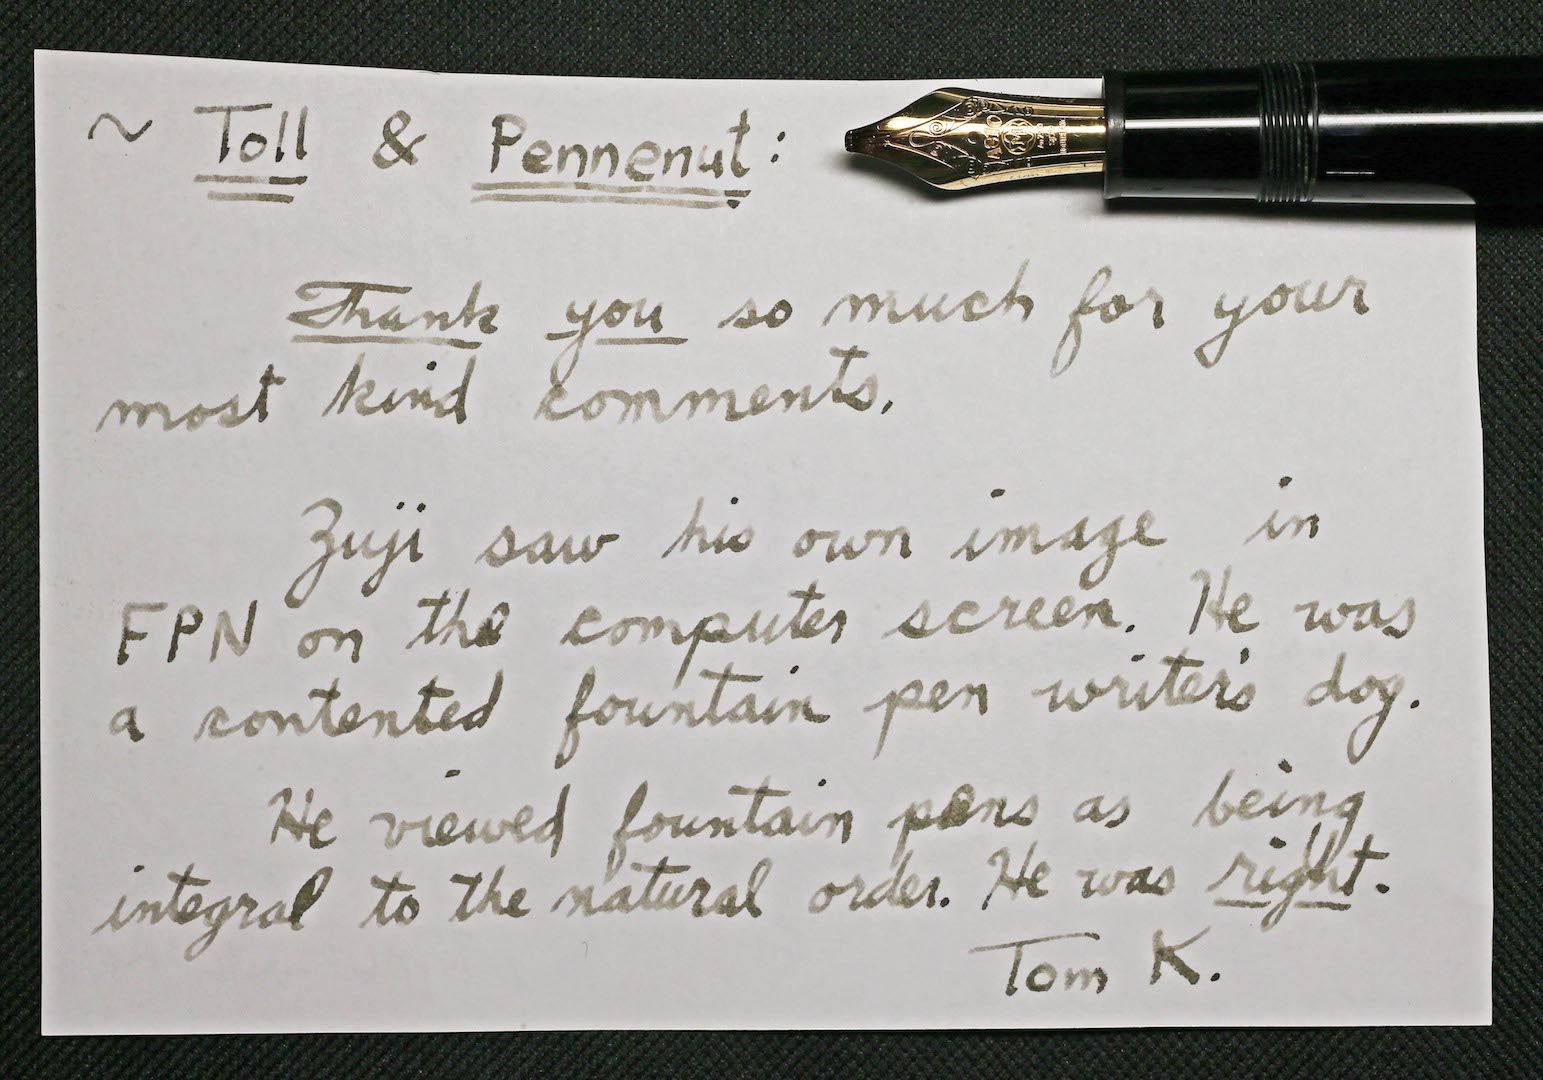 ~ Toll & Pennenut:
Thank you so much for your
most kind comments.
Zuji saw his own image in
FPN on the computer screen. He was
a contented fountain pen writer's dog.
He viewed fountain pens as being
integral to the natural order. He was right.
Tom K.